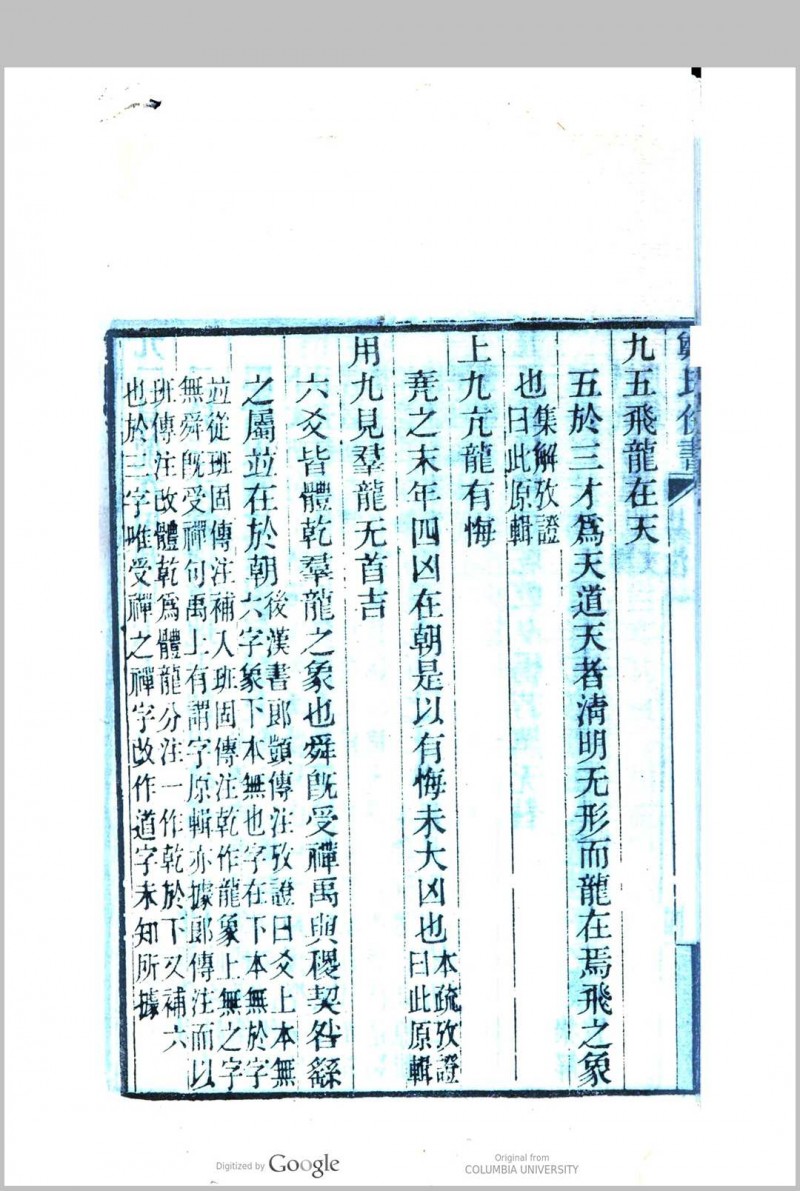 鄭氏佚書
九五飛龍在天
五於三才爲天道天者清明无形而龍在焉飛之象
也
集解攷證
曰此原輯
上九亢龍有悔
堯之末年四凶在朝是以有悔未大凶也
本疏攷證
曰此原輯
用九見羣龍无首吉
六爻皆體乾羣龍之象也舜旣受禪禹與稷契咎繇
之屬並在於朝
後漢書郎顗傳注攷證曰爻上本無
六字象下本無也字在下本無於字
並從班固傳注補入班固傳注乾作龍象上無之字
無舜旣受禪句禹上有謂字原輯亦據郎傳注而以
班傳注改體乾爲體龍分注一作乾於下又補六
也於三字唯受禪之禪字改作道字未知所據
Digitized by Google
Original from
COLUMBIA UNIVERSITY